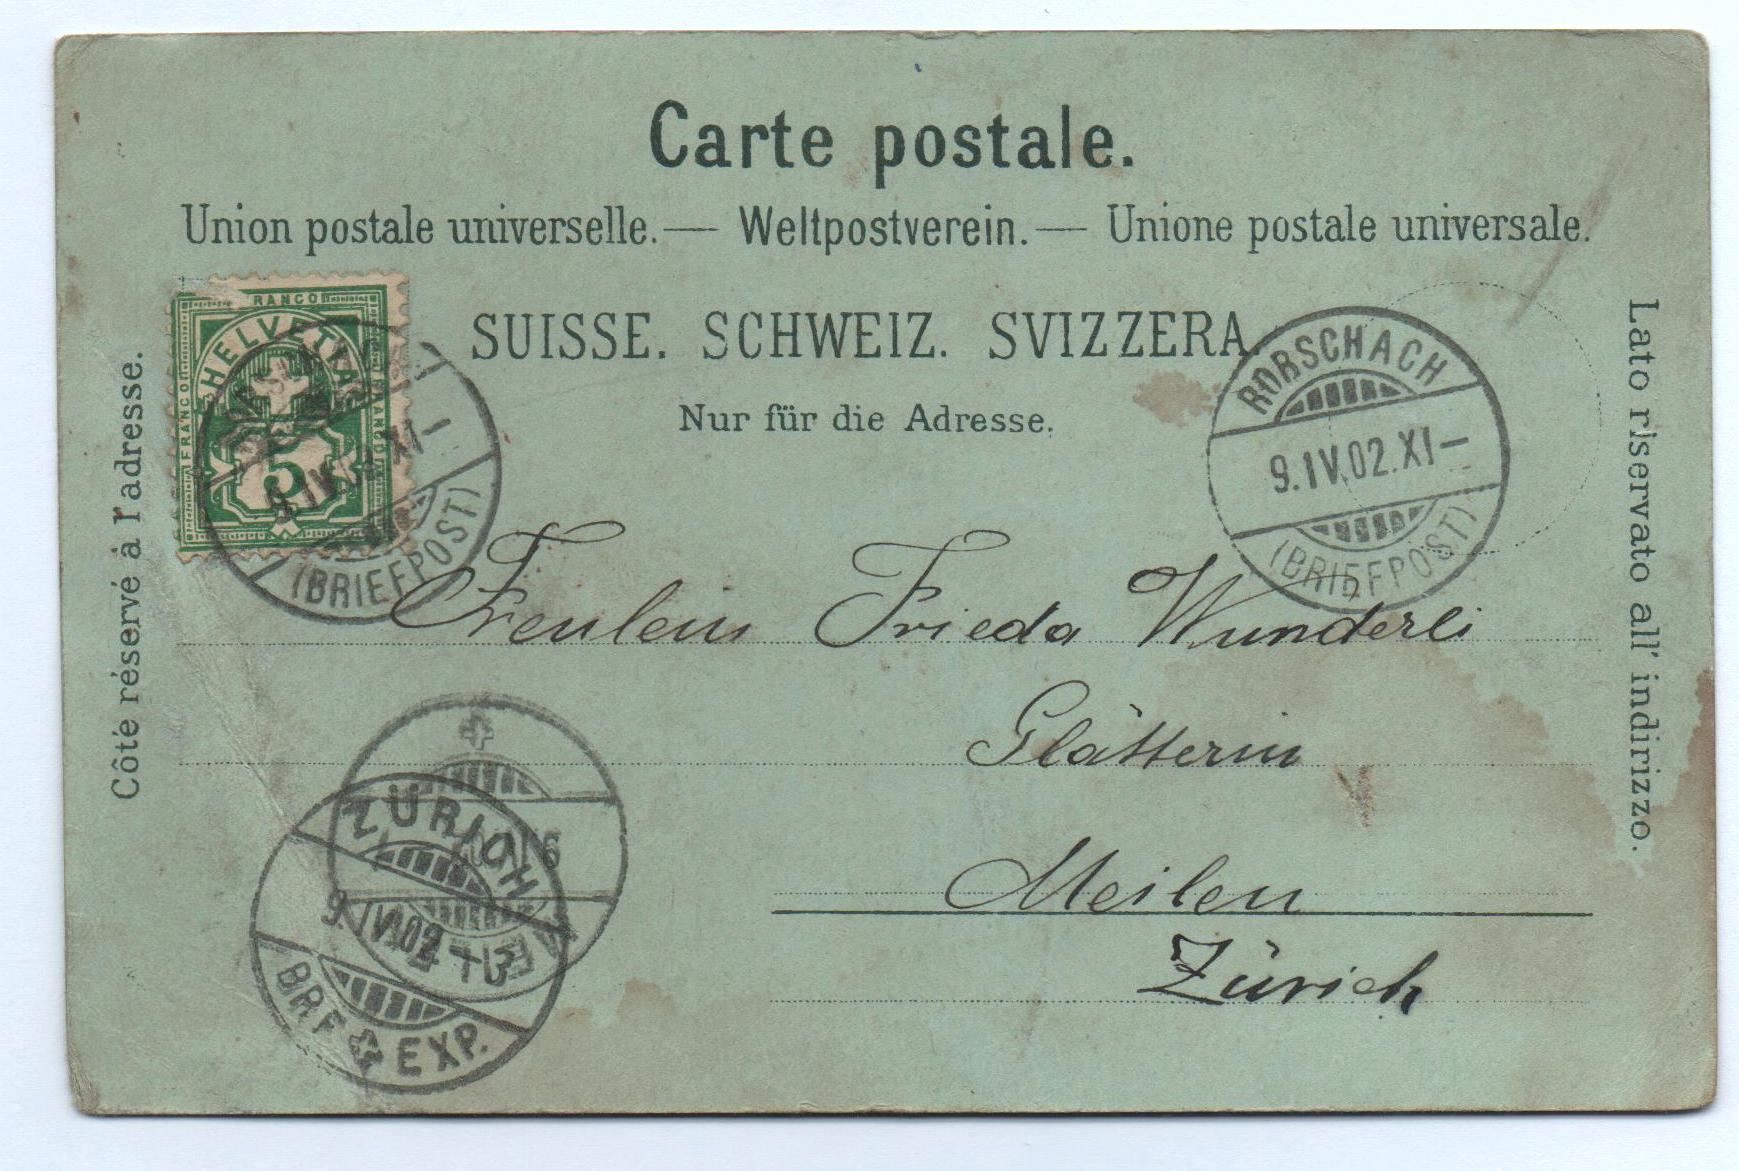 Carte postale.
Union postale universelle. — Weltpostverein. — Unione postale universale.
SUISSE. SCHWEIZ. SVIZZERA.
Nur für die Adresse.
Côté réservé à l'adresse.
Lato riservato all' indirizzo.
FRANCO
HELVETIA
FRANCO
5
9.IV.02.XI–
(BRIEFPOST)
RORSCHACH
9.IV.02.XI–
(BRIEFPOST)
Freulein Frieda Wunderli
Glätterin
Meilen
Zürich
ZÜRICH
9.IV.02.–3
BRF. EXP.